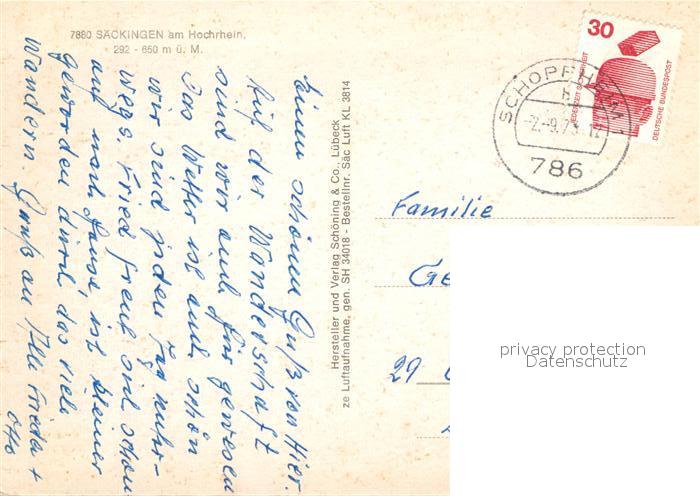 7880 SÄCKINGEN am Hochrhein,
292 - 650 m ü. M.
Einen schönen Gruß von Hier.
Auf der Wanderschaft
sind wir auch hier gewesen
Das Wetter ist auch schön
wir sind jeden Tag unter-
wegs. Fried freut sich schon
auf nach Hause, ist kleiner
geworden durch das viele
Wandern. Gruß an Alle Frieda +
Otto
Hersteller und Verlag Schöning & Co., Lübeck
ze Luftaufnahme, gen. SH 34018 - Bestellnr. Säc Luft KL 3814
30
JEDERZEIT SICHERHEIT
DEUTSCHE BUNDESPOST
SCHOPFHEIM
-2.-9.7
786
Familie
Ge
29
privacy protection
Datenschutz